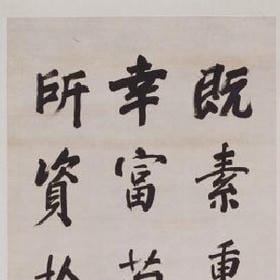 既素重
幸富
所資於